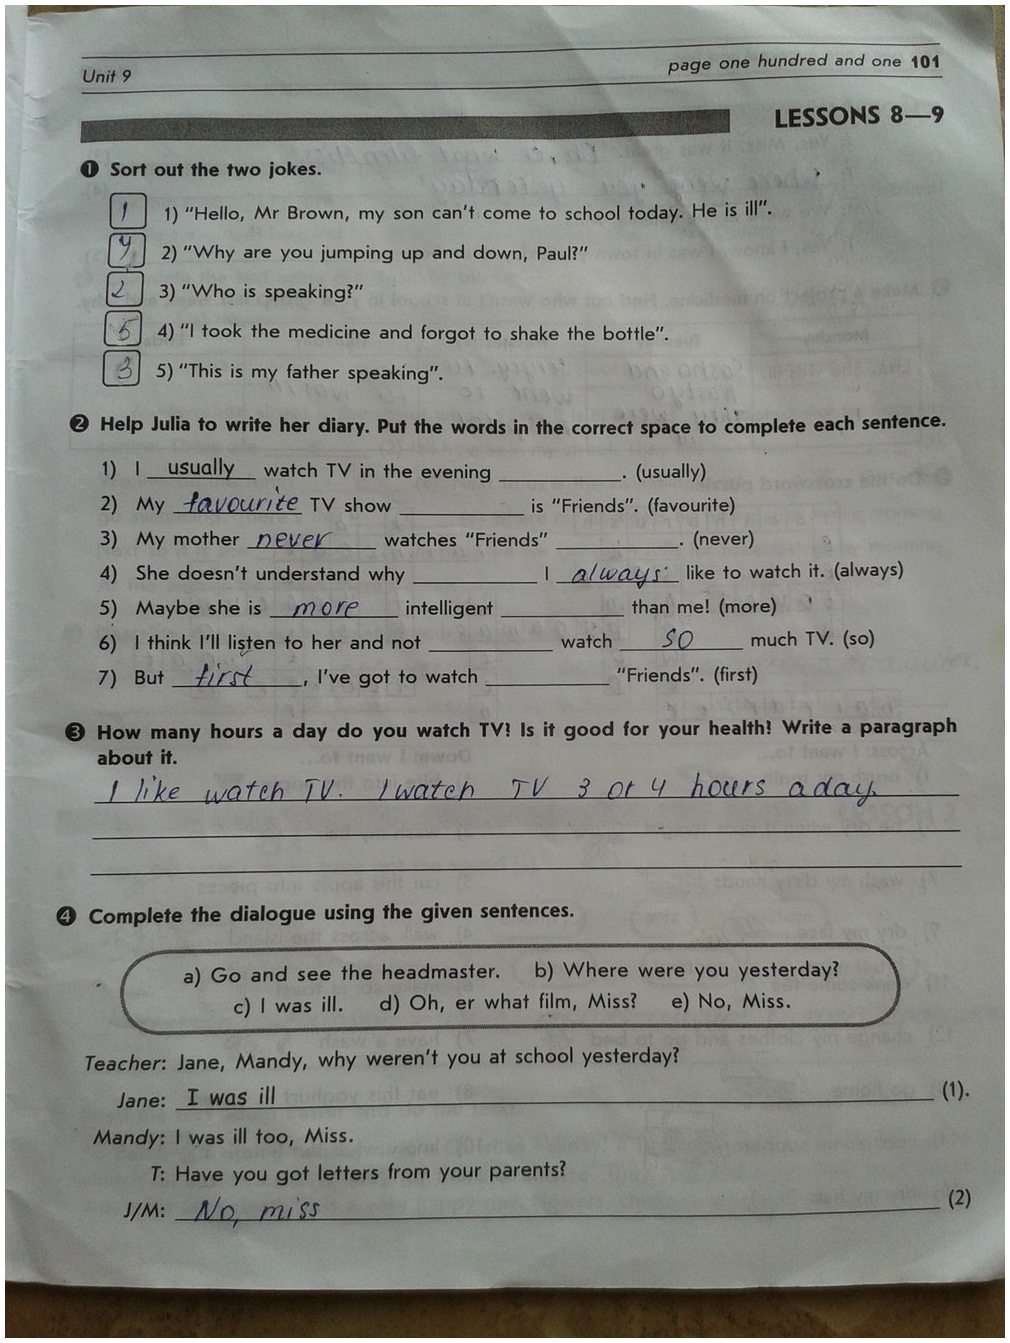 Unit 9
page one hundred and one 101
LESSONS 8—9
1 Sort out the two jokes.
1 1) "Hello, Mr Brown, my son can't come to school today. He is ill".
4 2) "Why are you jumping up and down, Paul?"
2 3) "Who is speaking?"
5 4) "I took the medicine and forgot to shake the bottle".
3 5) "This is my father speaking".
2 Help Julia to write her diary. Put the words in the correct space to complete each sentence.
1) I usually watch TV in the evening ____________. (usually)
2) My favourite TV show ____________ is "Friends". (favourite)
3) My mother never watches "Friends" ____________. (never)
4) She doesn't understand why ____________ I always like to watch it. (always)
5) Maybe she is more intelligent ____________ than me! (more)
6) I think I'll listen to her and not ____________ watch so much TV. (so)
7) But first, I've got to watch ____________ "Friends". (first)
3 How many hours a day do you watch TV? Is it good for your health? Write a paragraph
about it.
I like watch TV. I watch TV 3 or 4 hours a day.
4 Complete the dialogue using the given sentences.
a) Go and see the headmaster. b) Where were you yesterday?
c) I was ill. d) Oh, er what film, Miss? e) No, Miss.
Teacher: Jane, Mandy, why weren't you at school yesterday?
Jane: I was ill (1).
Mandy: I was ill too, Miss.
T: Have you got letters from your parents?
J/M: No, miss (2)